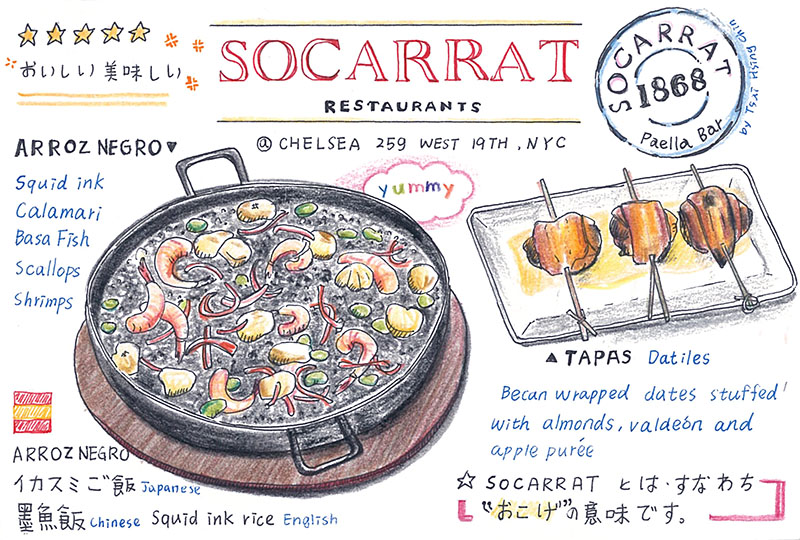 おいしい 美味しい
SOCARRAT
RESTAURANTS
@ CHELSEA 259 WEST 19TH, NYC
SOCARRAT
1868
Paella Bar
by TSAI HSING CHIN
ARROZ NEGRO
Squid ink
Calamari
Basa Fish
Scallops
Shrimps
yummy
TAPAS Datiles
Becan wrapped dates stuffed
with almonds, valdeón and
apple purée
ARROZ NEGRO
イカスミご飯 Japanese
墨魚飯 Chinese Squid ink rice English
☆ SOCARRAT とは・すなわち
"おこげ"の意味です。